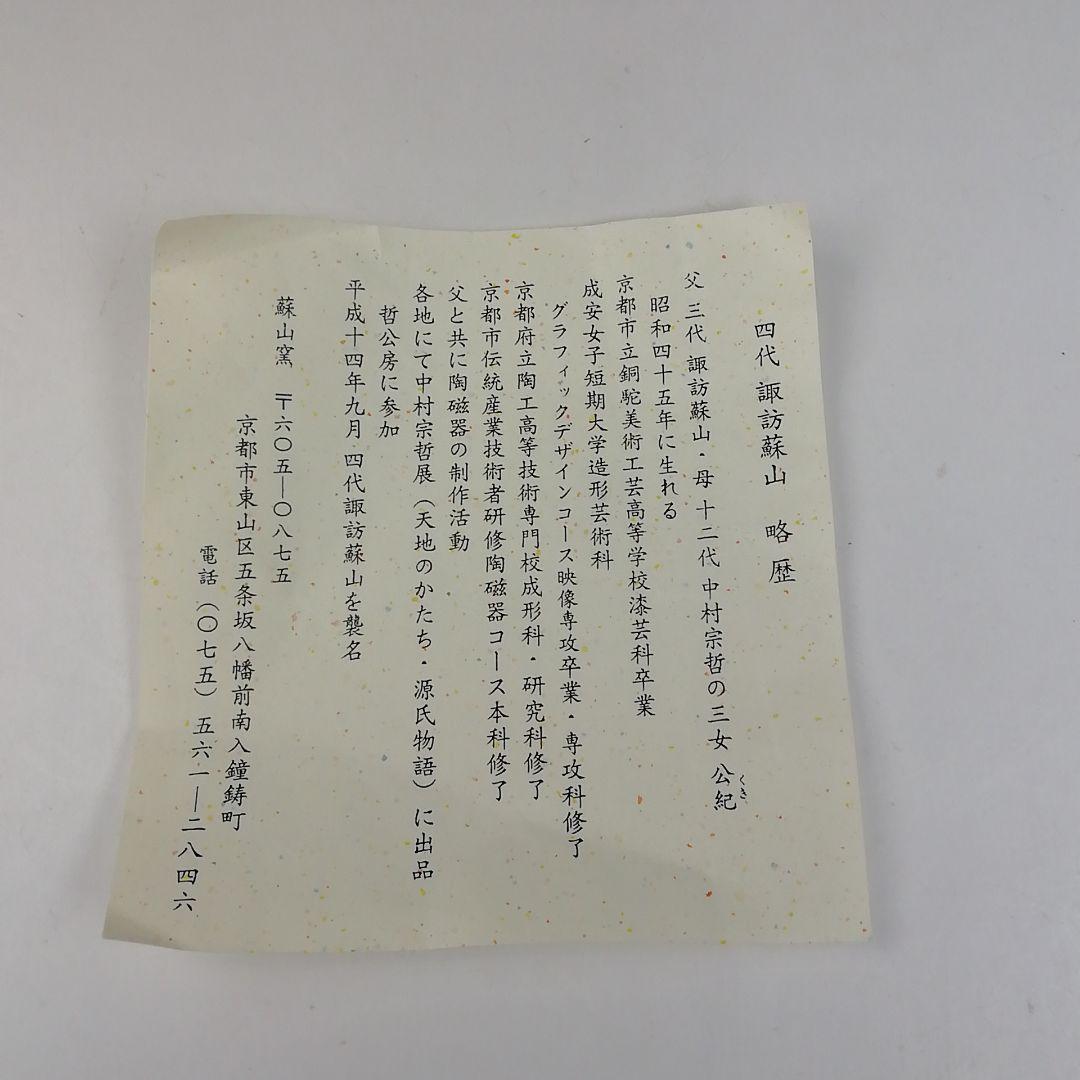 四代 諏訪蘇山 略歴
父 三代 諏訪蘇山・母 十二代 中村宗哲の三女 公紀
くき
昭和四十五年に生れる
京都市立銅駝美術工芸高等学校漆芸科卒業
成安女子短期大学造形芸術科
グラフィックデザインコース映像専攻卒業・専攻科修了
京都府立陶工高等技術専門校成形科・研究科修了
京都市伝統産業技術者研修陶磁器コース本科修了
父と共に陶磁器の制作活動
各地にて中村宗哲展（天地のかたち・源氏物語）に出品
哲公房に参加
平成十四年九月 四代諏訪蘇山を襲名
蘇山窯 〒六〇五―〇八七五
京都市東山区五条坂八幡前南入鐘鋳町
電話（〇七五）五六一―二八四六